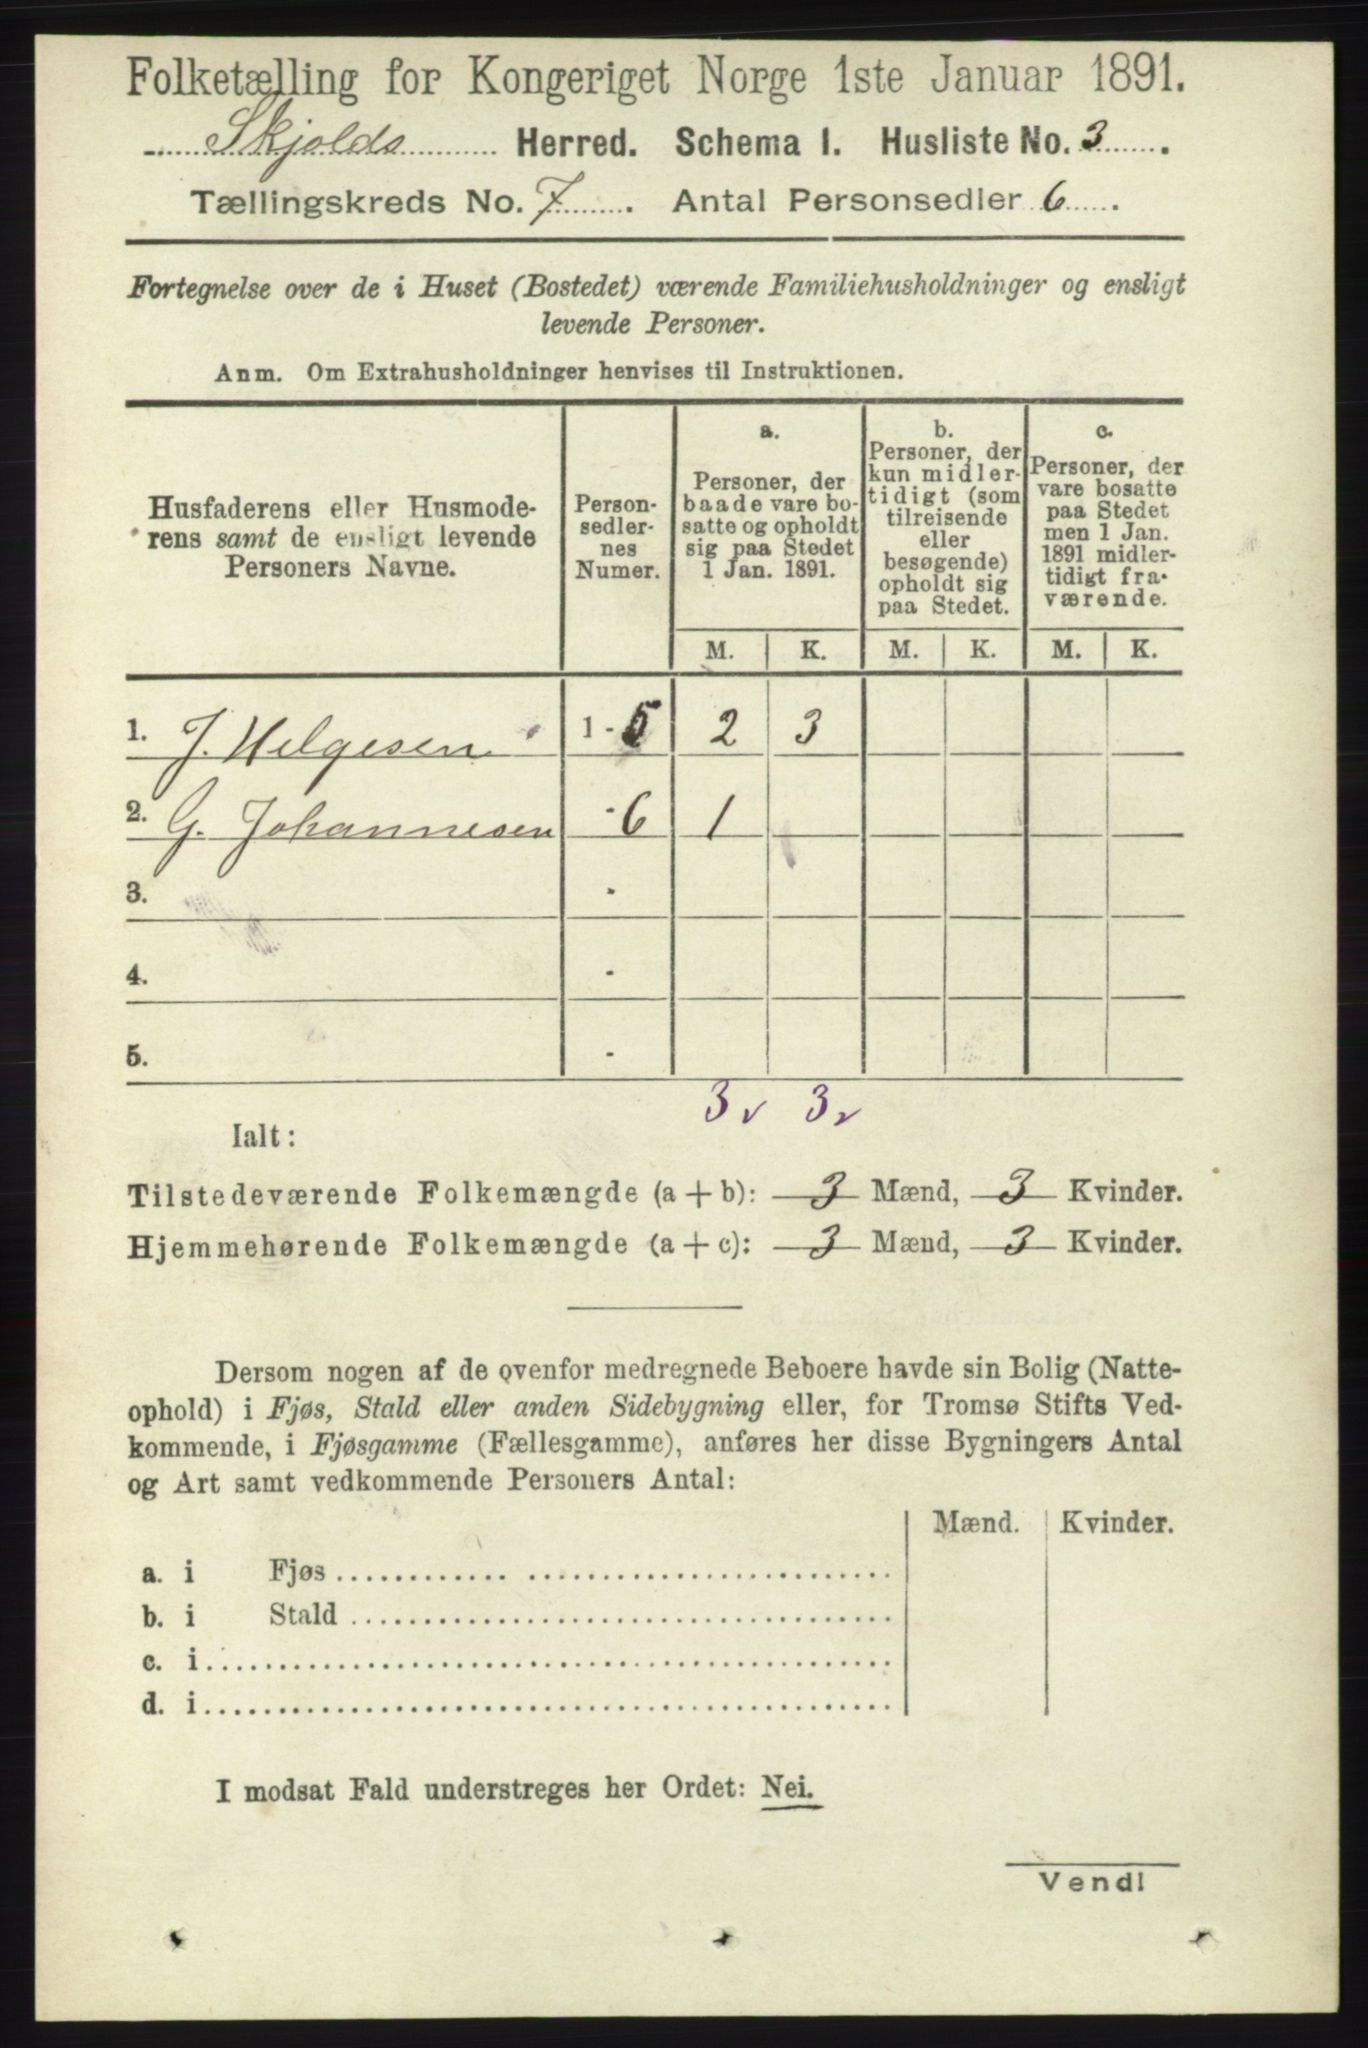 Folketælling for Kongeriget Norge 1ste Januar 1891.
Skjolds Herred. Schema I. Husliste No. 3.
Tællingskreds No. 7. Antal Personsedler 6.
Fortegnelse over de i Huset (Bostedet) værende Familiehusholdninger og ensligt
levende Personer.
Anm. Om Extrahusholdninger henvises til Instruktionen.
Husfaderens eller Husmode-
rens samt de ensligt levende
Personers Navne.
Person-
sedler-
nes
Numer.
a.
Personer, der
baade vare bo-
satte og opholdt
sig paa Stedet
1 Jan. 1891.
b.
Personer, der
kun midler-
tidigt (som
tilreisende
eller
besøgende)
opholdt sig
paa Stedet.
c.
Personer, der
vare bosatte
paa Stedet
men 1 Jan.
1891 midler-
tidigt fra-
værende.
M. K. M. K. M. K.
1. J. Helgesen 1 - 5 2 3
2. G. Johannesen - 6 1
3. -
4. -
5. -
3 v 3 v
Ialt:
Tilstedeværende Folkemængde (a + b): 3 Mænd, 3 Kvinder.
Hjemmehørende Folkemængde (a + c): 3 Mænd, 3 Kvinder.
Dersom nogen af de ovenfor medregnede Beboere havde sin Bolig (Natte-
ophold) i Fjøs, Stald eller anden Sidebygning eller, for Tromsø Stifts Ved-
kommende, i Fjøsgamme (Fællesgamme), anføres her disse Bygningers Antal
og Art samt vedkommende Personers Antal:
Mænd. Kvinder.
a. i Fjøs
b. i Stald
c. i
d. i
I modsat Fald understreges her Ordet: Nei.
Vend!